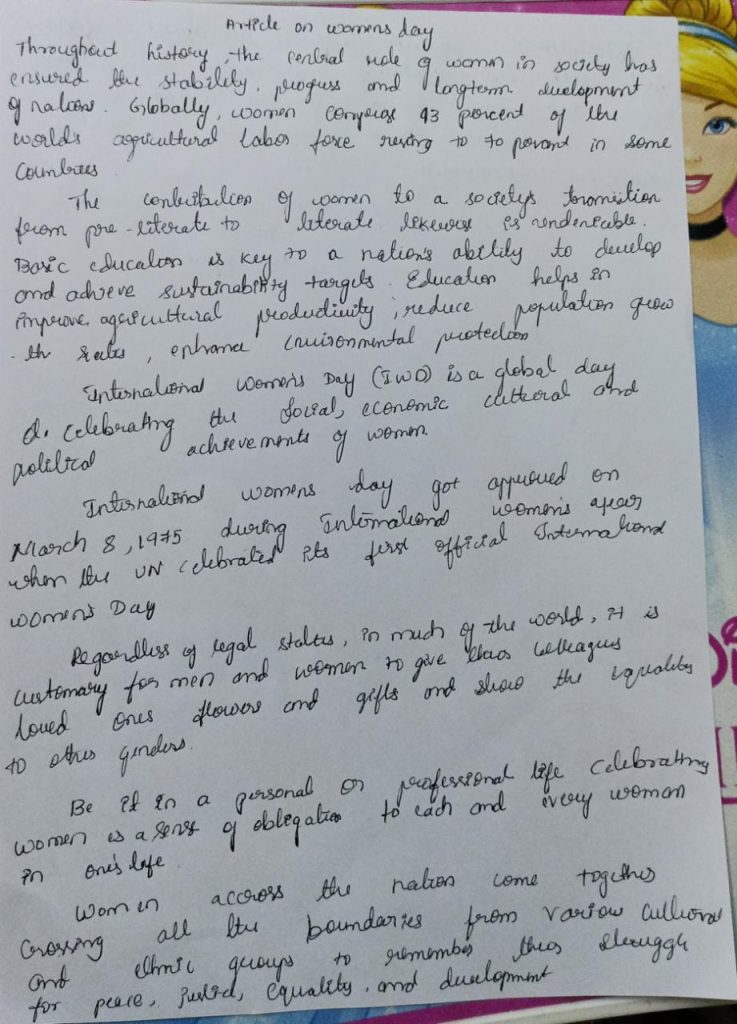 Article on womens day
Throughout history, the central role of women in society has
ensured the stability, progress and longterm development
of nations. Globally, women comprose 43 percent of the
worlds agricultural labor force rising to 70 percent in some
Countries
The contribution of women to a society's transition
from pre-literate to literate likewise is undeniable.
Basic education is key to a nation's ability to develop
and achieve sustainability targets. Education helps in
improve agricultural productivity, reduce population grow
-th rates, enhance environmental protection
International Women's Day (IWD) is a global day
d. celebrating the social, economic cultural and
political achievements of women.
International womens day got approved on
March 8, 1975 during International women's year
when the UN celebrated its first official International
women's Day
Regardless of legal status, in much of the world, it is
customary for men and women to give colleagues
loved ones flowers and gifts and show the equality
to other genders.
Be it in a personal or professional life celebrating
women is a sense of obligation to each and every woman
in one's life
Women accross the nation come together
Crossing all the boundaries from various cultural
and ethnic groups to remember struggle
for peace, justice, equality, and development